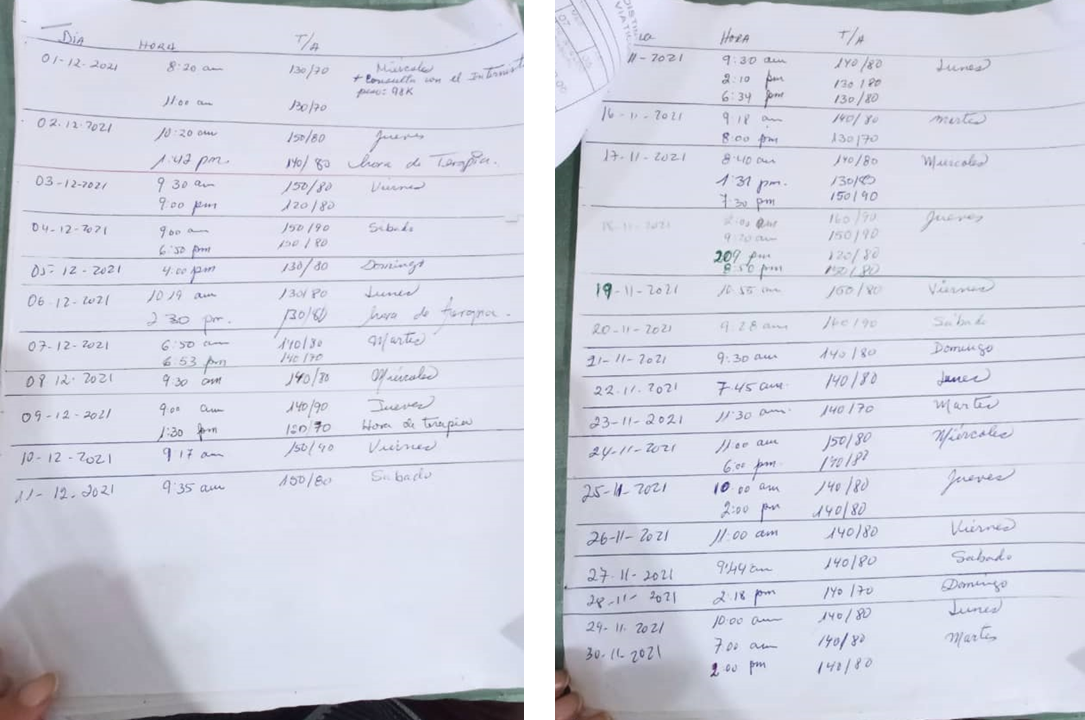 DIA HORA T/A
01-12-2021 8:20 am 130/70 Miercoles
+ consulta con el Internista
peso: 98K
11:00 am 130/70
02-12-2021 10:20 am 150/80 Jueves
1:42 pm. 140/80 hora de Terapia.
03-12-2021 9 30 am 150/80 Viernes
9:00 pm 120/80
04-12-2021 9:00 am 150/90 Sábado
6:50 pm 150/80
05-12-2021 4:00 pm 130/80 Domingo
06-12-2021 10 19 am 130/80 Lunes
2 30 pm. 130/80 hora de terapia.
07-12-2021 6:50 am 140/80 Martes
6:53 pm 140/70
08 12-2021 9 30 am 140/80 Miércoles
09-12-2021 9:00 am 140/90 Jueves
1:30 pm 120/70 Hora de terapia
10-12-2021 9 17 am 150/90 Viernes
11-12-2021 9:35 am 150/80 Sabado
HORA T/A
11-2021 9:30 am 140/80 Lunes
2:10 pm 130/80
6:34 pm 130/80
16-11-2021 9 18 am 140/80 martes
8:00 pm 130/70
17-11-2021 8:40 am 140/80 Miercoles
1:31 pm. 130/80
7:30 pm 150/90
18-11-2021 160/90 Jueves
9:20 am 150/90
209 pm 120/80
8:50 pm 150/80
19-11-2021 10 55 am 150/80 Viernes
20-11-2021 9:28 am 140/90 Sabado
21-11-2021 9:30 am 140/80 Domingo
22-11-2021 7:45 am. 140/80 Lunes
23-11-2021 11:30 am. 140/70 Martes
24-11-2021 11:00 am 150/80 Miércoles
6:00 pm. 140/80
25-11-2021 10:00 am 140/80 Jueves
2:00 pm 140/80
26-11-2021 11:00 am 140/80 Viernes
27-11-2021 9:44 am 140/80 Sabado
28-11-2021 2:18 pm 140/70 Domingo
29-11-2021 10:00 am 140/80 Lunes
30-11-2021 7:00 am 140/80 Martes
2:00 pm 140/80